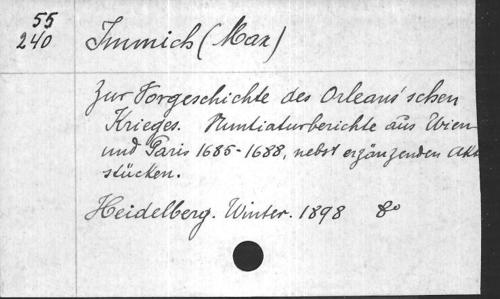 55
240
Immich (Max)
Zur Vorgeschichte des Orleans'schen
Krieges. Nuntiaturberichte aus Wien
und Paris 1685-1688, nebst ergänzenden Akt
stücken.
Heidelberg. Winter. 1898 8o